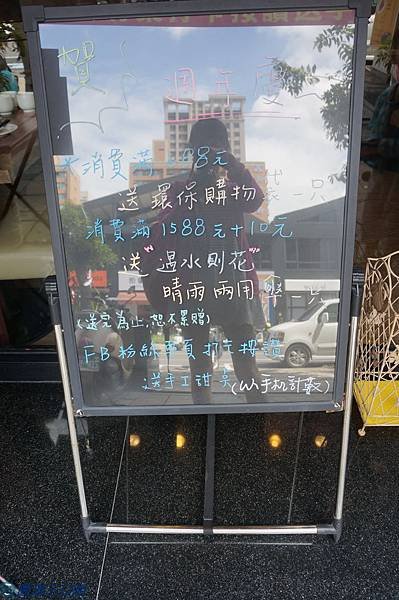 賀 週年慶
*消費滿 88元
送環保購物袋一只
消費滿1588元+10元
送"遇水則花"
晴雨兩用傘
(送完為止,恕不累贈)
FB粉絲專頁打卡按讚
送手工甜點(以手机計數)